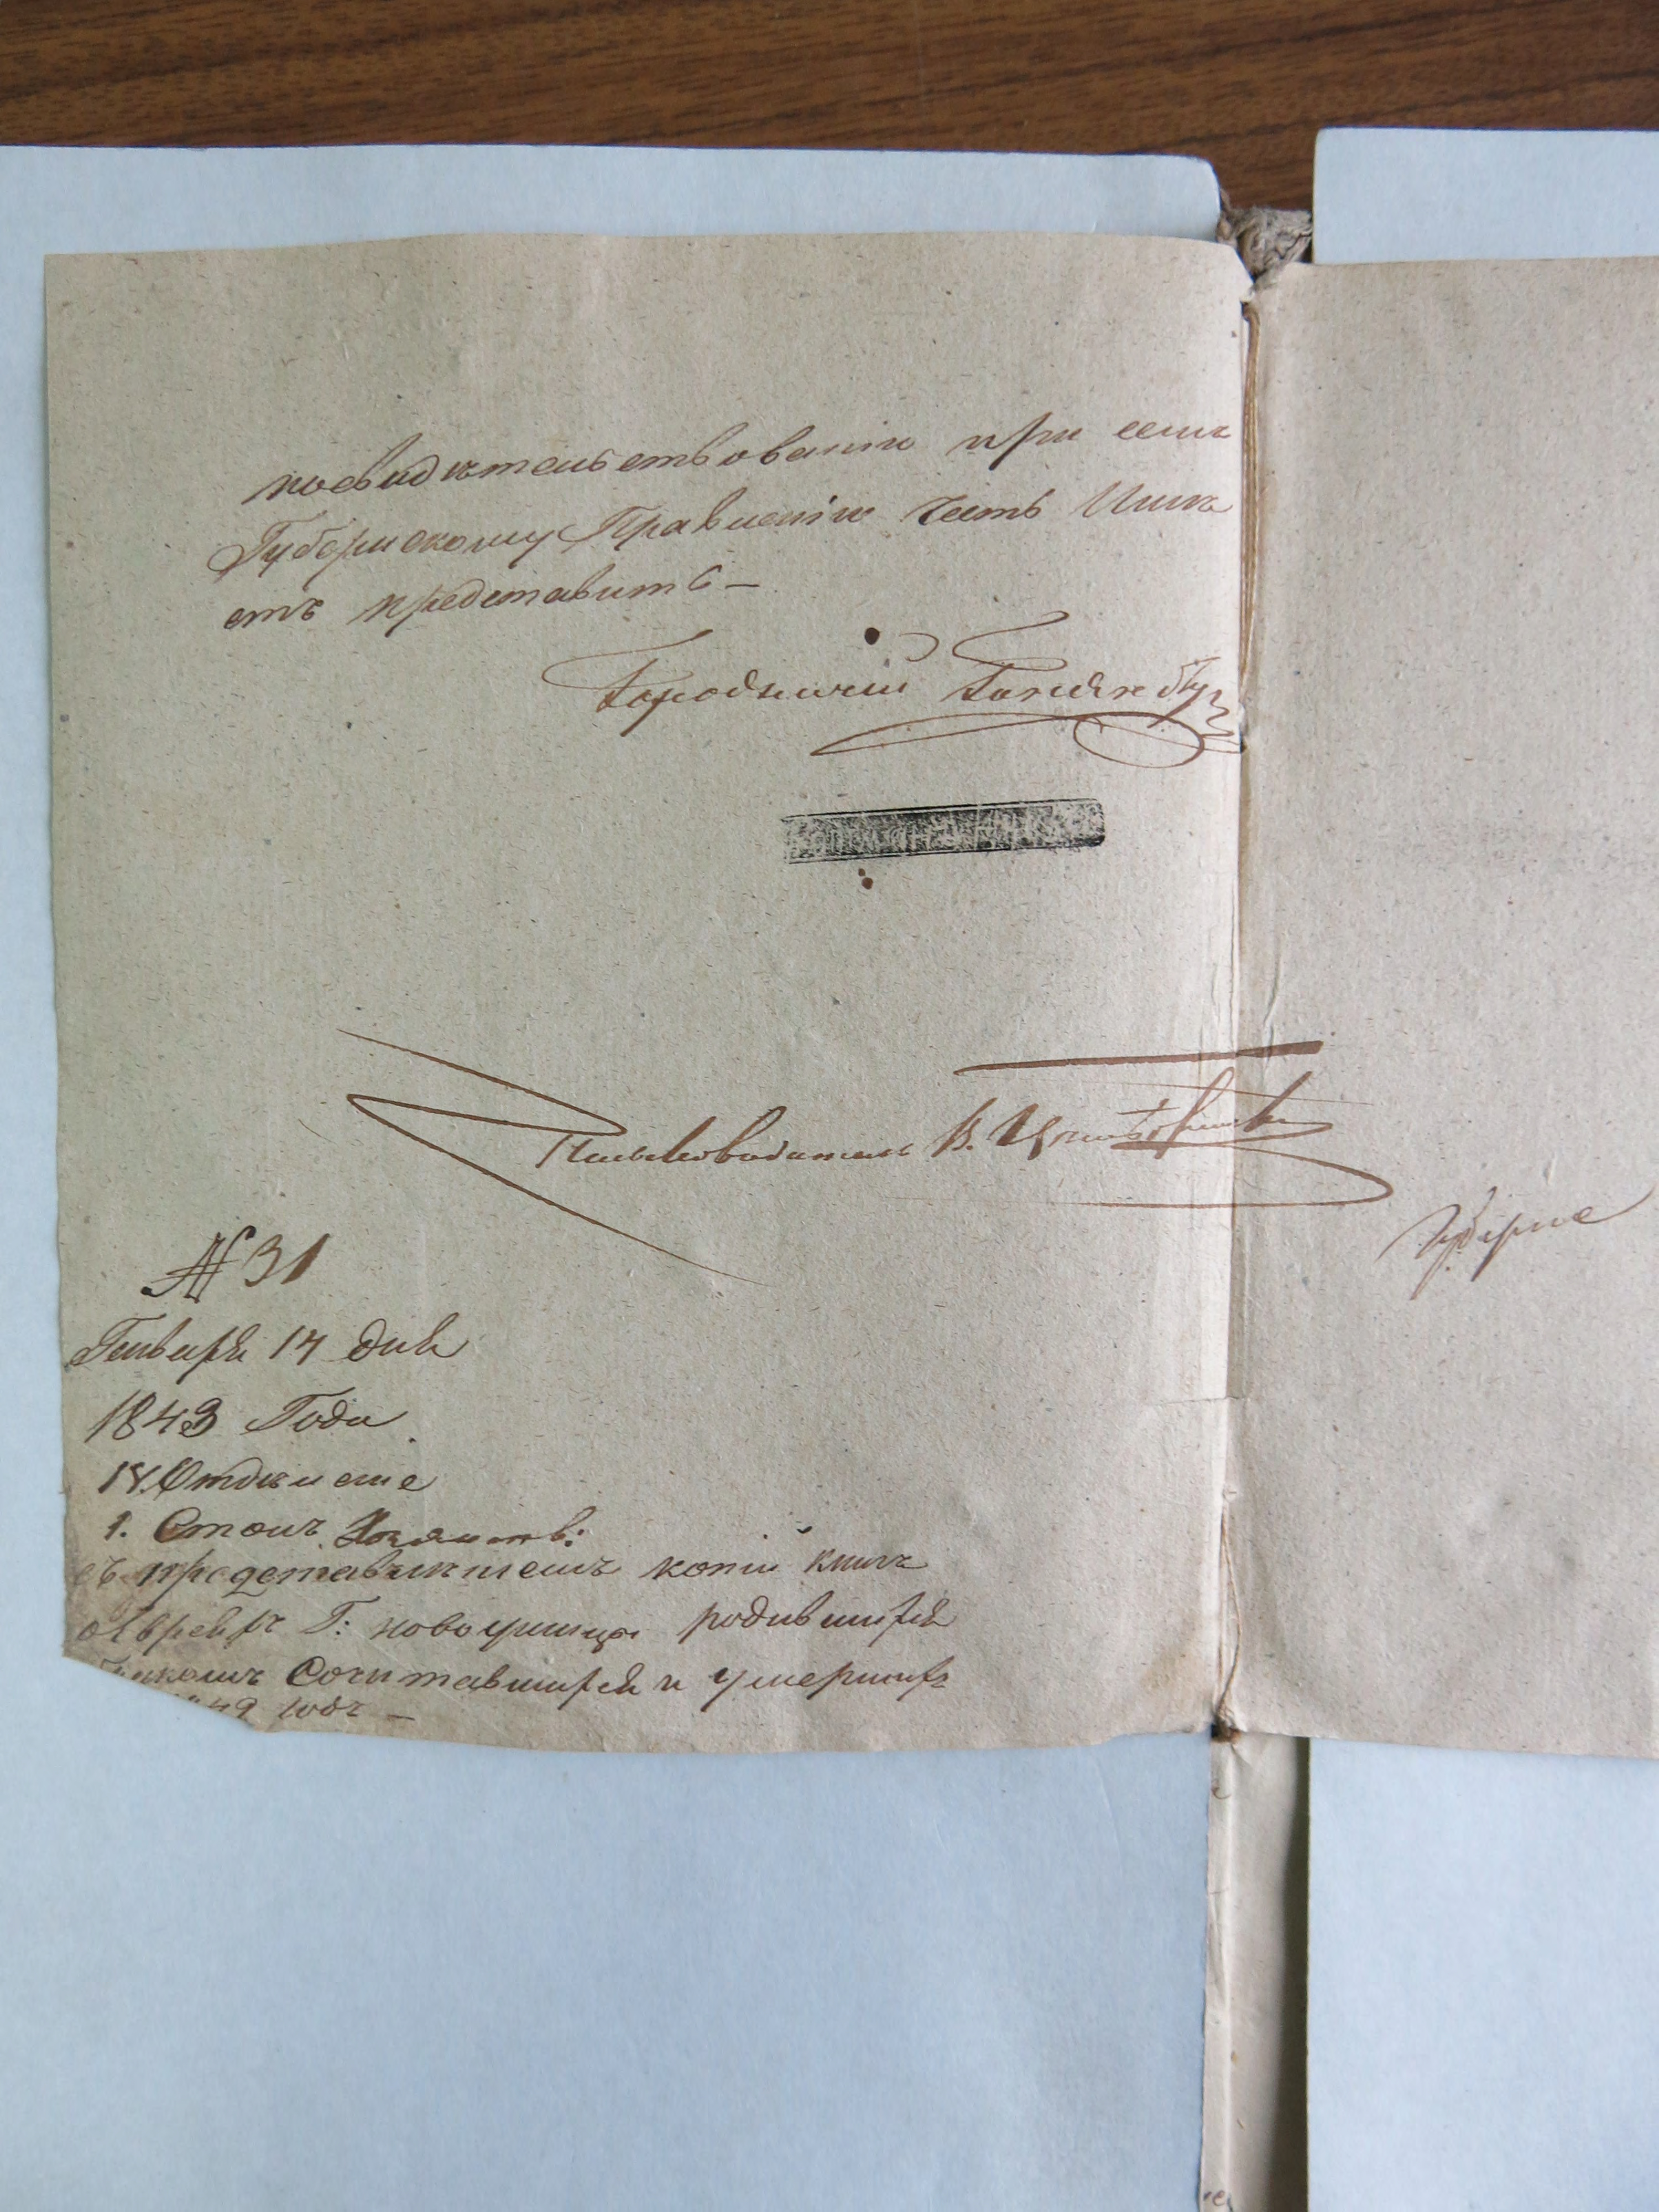 посвидѣтельствованіи при семъ
Губернскому Правленію честь Имѣ
етъ представить —
Городничій
Письмоводитель В.
№ 31
Генваря 14 дня
1843 Года
IV. Отдѣленіе
1. Столъ
съ представленіемъ копій книгъ
о Евреяхъ Г: новоушицы родившихся
Сочитавшихся и умершихъ
годъ —
Губерн